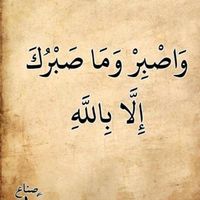 وَاصْبِرْ وَمَا صَبْرُكَ
إِلَّا بِاللَّهِ
صناع